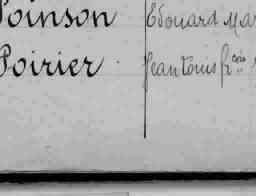 Poinson Edouard Mar
Poirier Jean Louis fr.çois